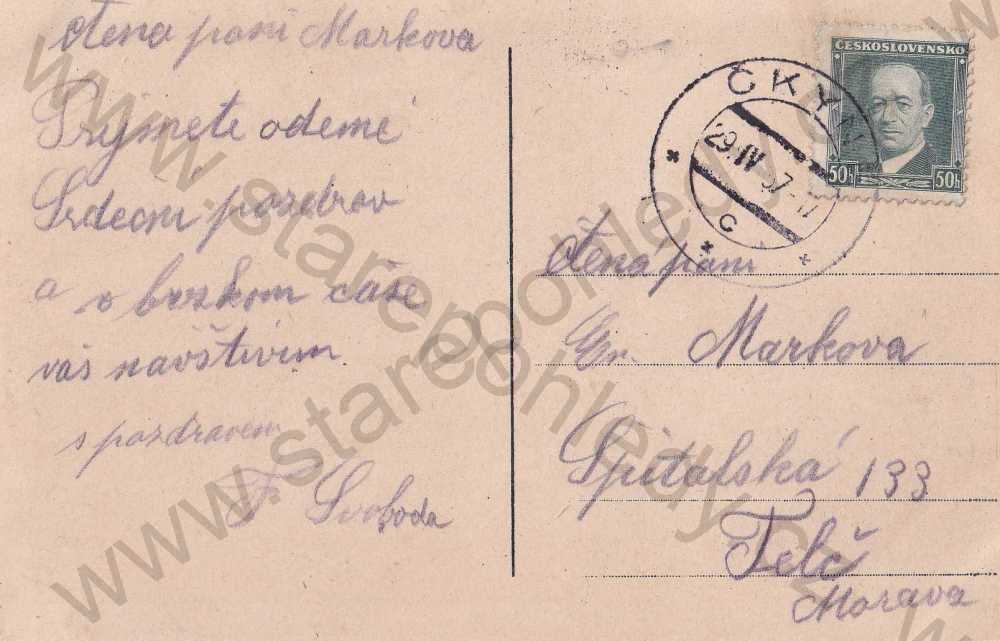 Ctena paní Markova
Prijmete odemě
Srdecni pozdrov
a v brzkom čaše
vás navštívim
s pozdravem
F. Svoboda
ČESKOSLOVENSKO
50h 50h
ČKYN
29.IV 37-17
c
Čtena pani
Markova
Špitalská 133
Telč
Morava
www.starepohledy.cz
www.starepohledy.cz